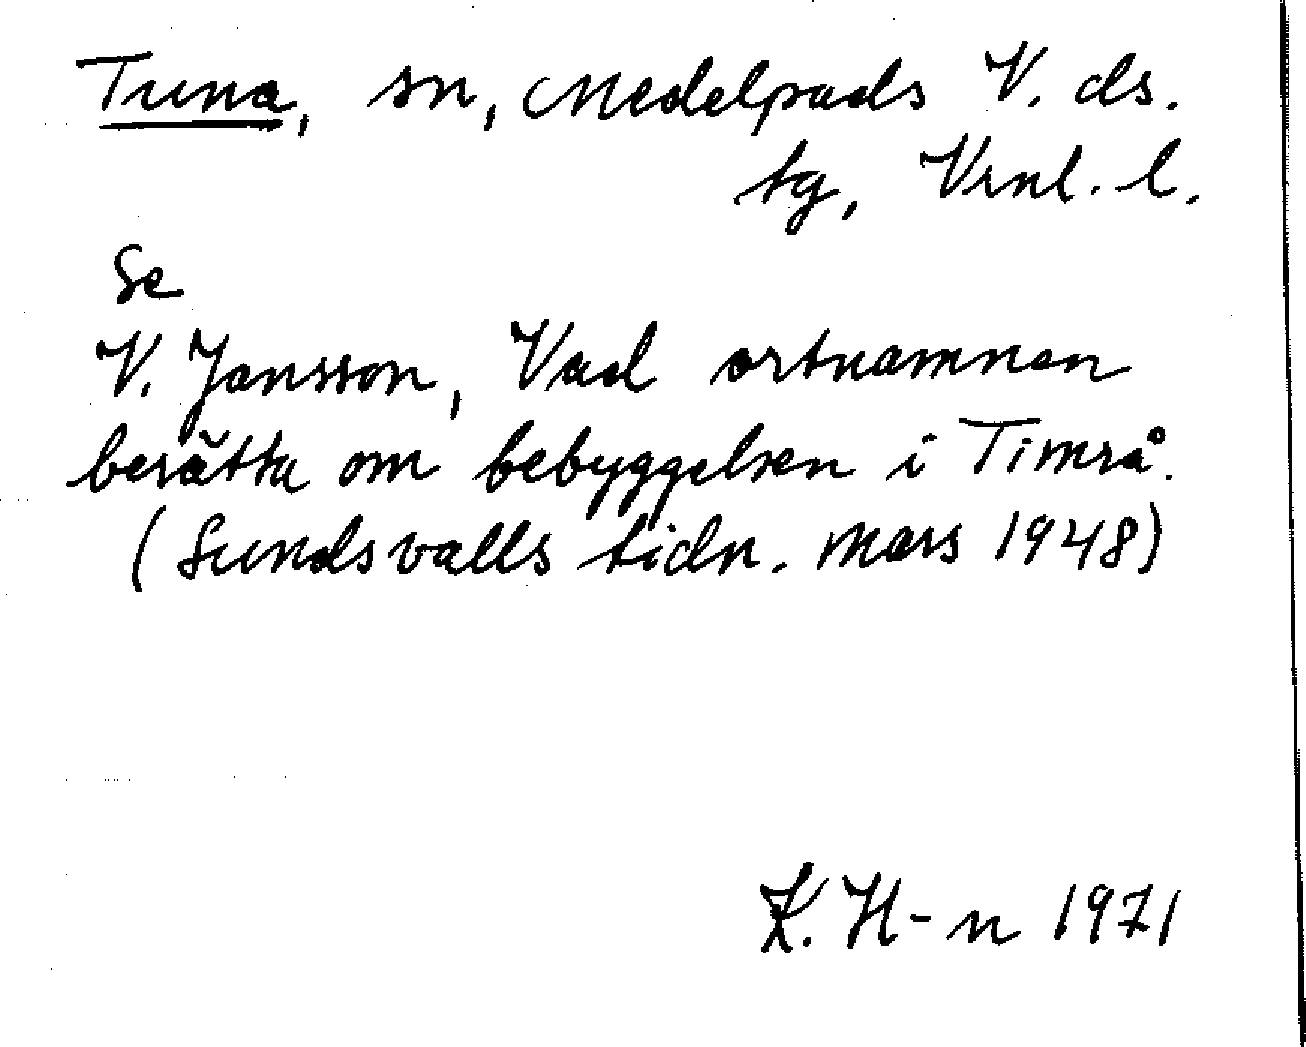 Tuna, sn, Medelpads V. ds.
tg, Vrnl. l.
Se
V. Jansson, Vad ortnamnen
berätta om bebyggelsen i Timrå.
(Sundsvalls tidn. mars 1948)
K. H-n 1971